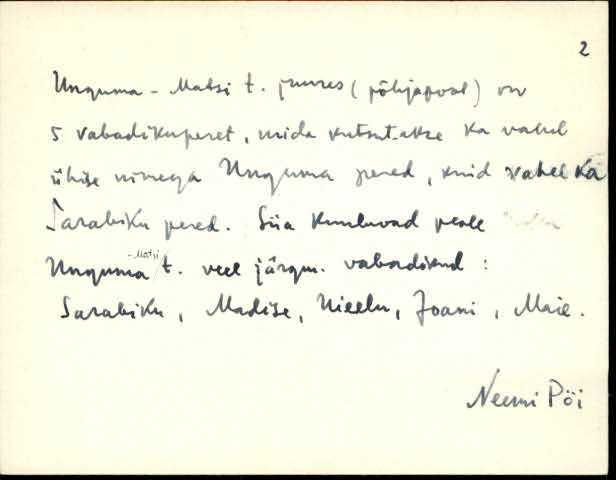 2
Unguma - Matsi t. juures (põhjapool) on
5 vabadikuperet, mida kutsutakse ka vahel
ühise nimega Unguma pered, kuid vahel ka
Sarabiku pered. Siia kuuluvad peale
Unguma -Matsi t. veel järgm. vabadikud :
Sarabiku, Madise, Nieelu, Joani, Maie.
Neemi Pöi